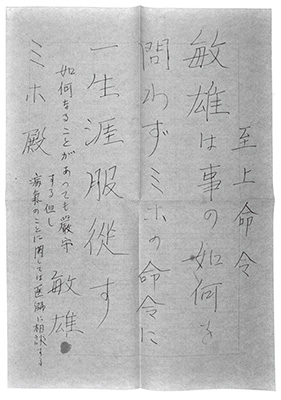 至上命令
敏雄は事の如何を
問わずミホの命令に
一生涯服従す
如何なることがあっても厳守
する但し
病気のことに関しては医師に相談する
敏雄
ミホ殿